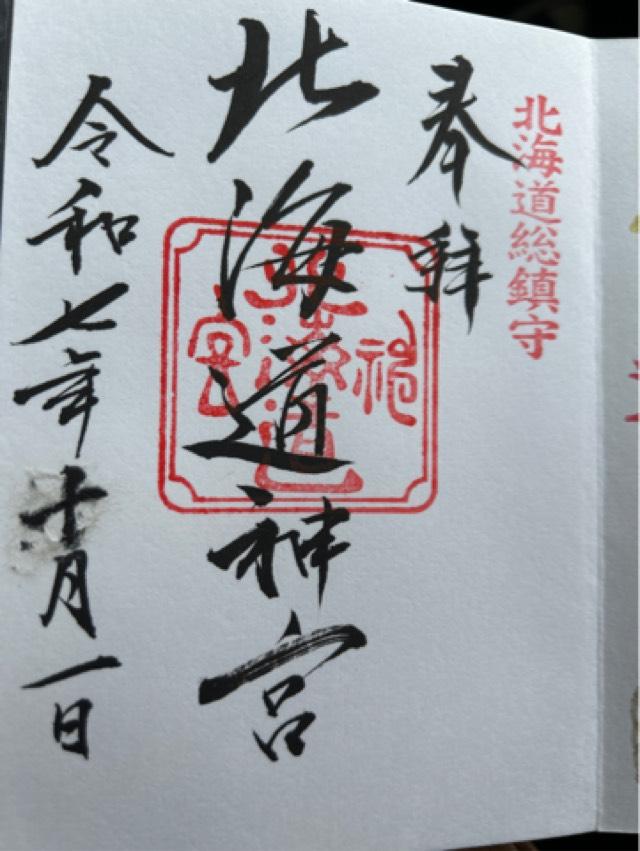 北海道総鎮守
奉拝
北海道神宮
北海道神宮
令和七年十月一日